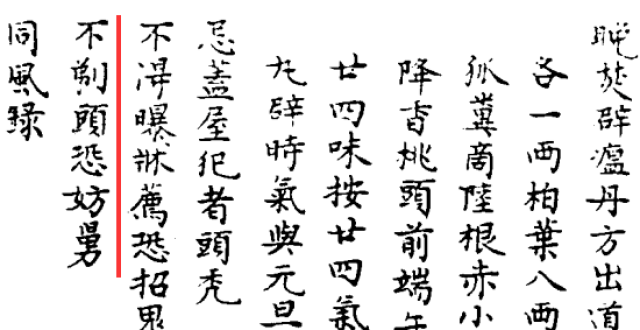 晚焚辟瘟丹方出道
各一两柏葉八两
狐糞商陸根赤小
降香桃頭前端午
廿四味按廿四氣
丸辟時氣與元旦
忌蓋屋犯者頭禿
不淂曝牀薦恐招鬼
不剃頭恐妨舅
同風録